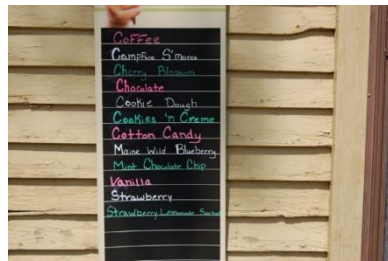 Coffee
Campfire S'mores
Cherry Blossom
Chocolate
Cookie Dough
Cookies 'n Creme
Cotton Candy
Maine Wild Blueberry
Mint Chocolate Chip
Vanilla
Strawberry
Strawberry Lemonade